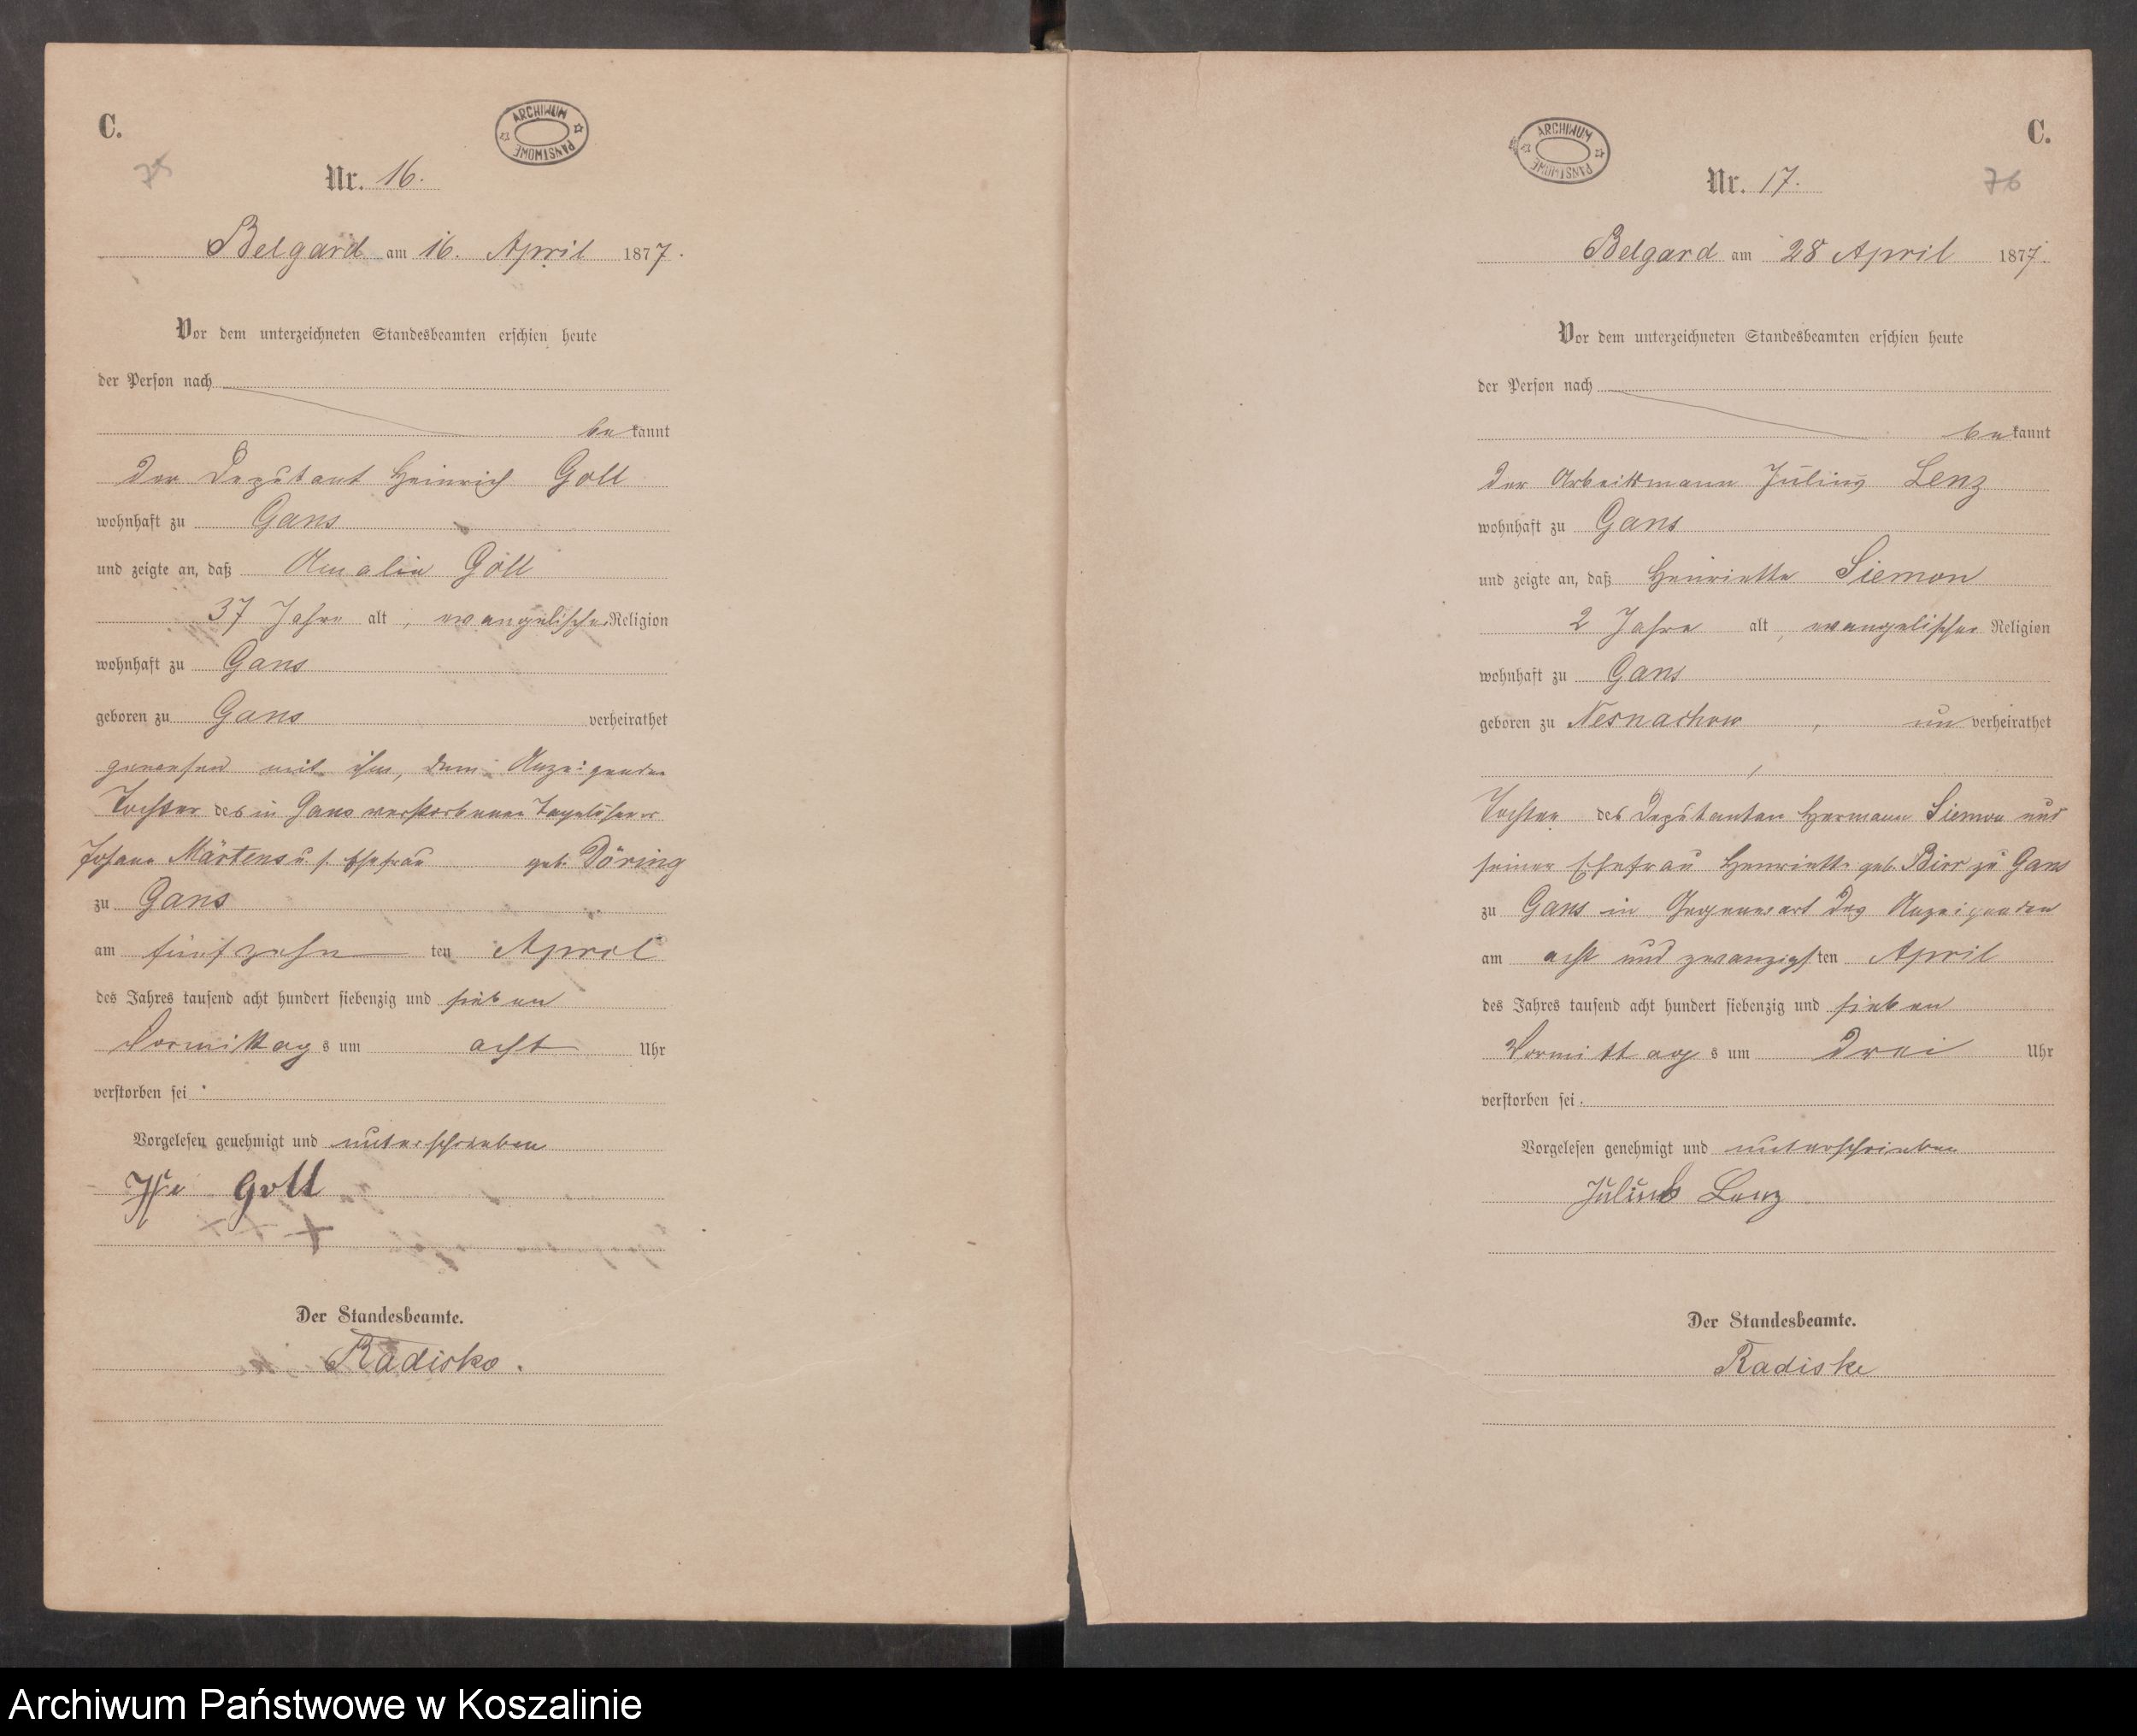 C.
ARCHIWUM PAŃSTWOWE
75
Nr. 16.
Belgard am 16. April 1877.
Vor dem unterzeichneten Standesbeamten erschien heute
der Person nach
bekannt
der Deputant Heinrich Goll
wohnhaft zu Gans
und zeigte an, daß Amalie Göll
37 Jahre alt, evangelischer Religion
wohnhaft zu Gans
geboren zu Gans verheirathet
gewesen mit ihm, dem Anzeigenden
Tochter des in Gans verstorbenen Tagelöhner
Johann Märtens u. s. Ehefrau geb. Döring
zu Gans
am fünfzehnten April
des Jahres tausend acht hundert siebenzig und sieben
Vormittags um acht Uhr
verstorben sei.
Vorgelesen genehmigt und unterschrieben
Goll
+ + +
Der Standesbeamte.
Radiske.
C.
ARCHIWUM PAŃSTWOWE
76
Nr. 17.
Belgard am 28 April 1877.
Vor dem unterzeichneten Standesbeamten erschien heute
der Person nach
bekannt
der Arbeitsmann Julius Lenz
wohnhaft zu Gans
und zeigte an, daß Henriette Siemon
2 Jahre alt, evangelischer Religion
wohnhaft zu Gans
geboren zu Nesnachow, unverheirathet
Tochter des Deputanten Hermann Siemon und
seiner Ehefrau Henriette geb. Birr zu Gans
zu Gans in Gegenwart des Anzeigenden
am acht und zwanzigsten April
des Jahres tausend acht hundert siebenzig und sieben
Vormittags um drei Uhr
verstorben sei.
Vorgelesen genehmigt und unterschrieben
Julius Lenz
Der Standesbeamte.
Radiske
Archiwum Państwowe w Koszalinie